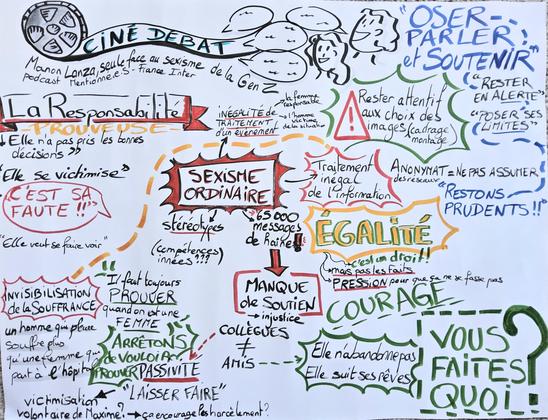 CINÉ DEBAT
Manon Lanza, seule face au sexisme
de la Gen Z
podcast Mentionné.e.s - France Inter
"OSER-
PARLER
et SOUTENIR"
"RESTER
EN ALERTE"
"POSER SES
LIMITES"
"RESTONS
PRUDENTS!!"
La Responsabilité
PROUVEUSE
↓ Elle n'a pas pris les bonnes
décisions
"Elle se victimise"
C'EST SA
FAUTE !!"
"Elle veut se faire voir"
INÉGALITÉ DE
TRAITEMENT
d'un évènement
la femme
responsable
l'homme
victime
de la situation
Rester attentif
aux choix des
images (cadrage
montage
SEXISME
ORDINAIRE
Traitement
inégal
de l'information
ANONYMAT = NE PAS ASSUMER
des réseaux
stéréotypes
(compétences
innées???)
65000
messages
de haine !
ÉGALITÉ
c'est un droit!!
mais pas les faits
PRESSION pour que ça ne se fasse pas
INVISIBILISATION
de la SOUFFRANCE
un homme qui pleure
souffre plus
qu'une femme qui
part à l'hôpital
"Il faut toujours
PROUVER
quand on est une
FEMME
MANQUE
de SOUTIEN
→ injustice
COLLÈGUES
≠
AMIS
COURAGE
ARRÊTONS
de vouloir
PROUVER
PASSIVITÉ
"LAISSER FAIRE"
Elle n'abandonne pas
Elle suit ses rêves
VOUS
FAITES
QUOI ?
victimisation
volontaire de Maxime?
→ ça encourage les harcèlement?